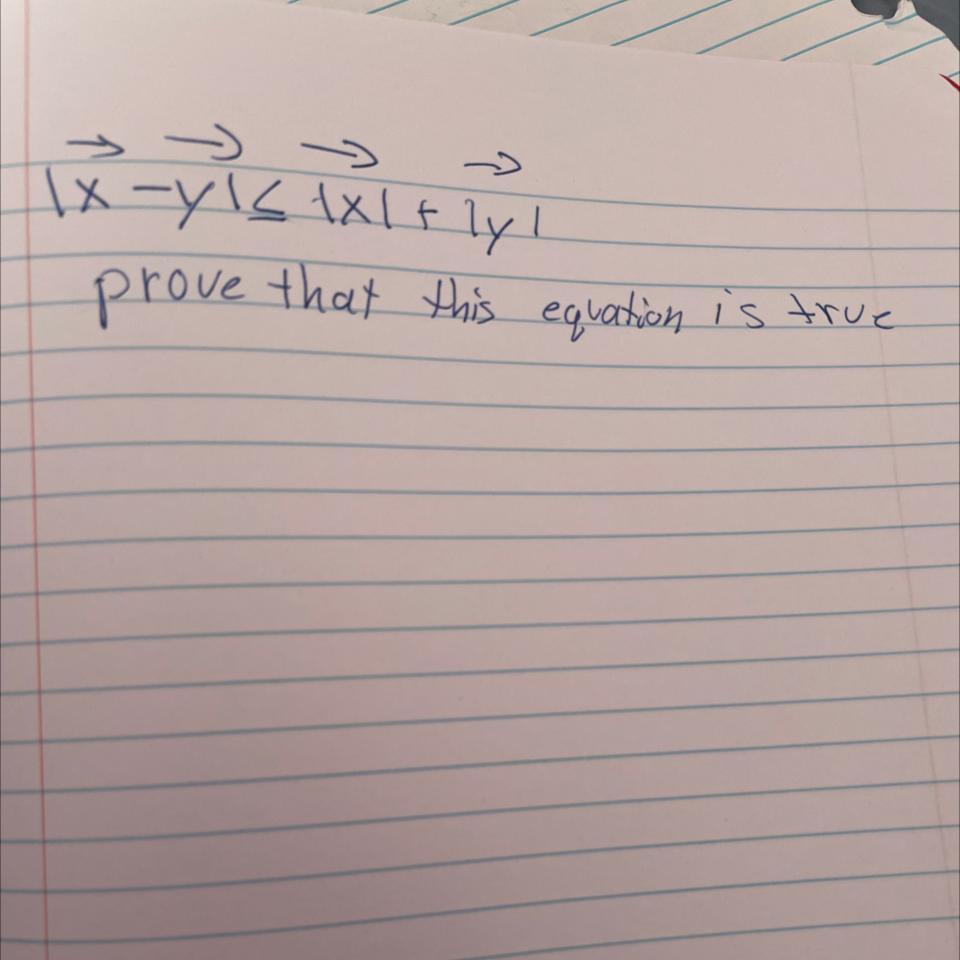 |x⃗ - y⃗| ≤ |x⃗| + |y⃗|
prove that this equation is true